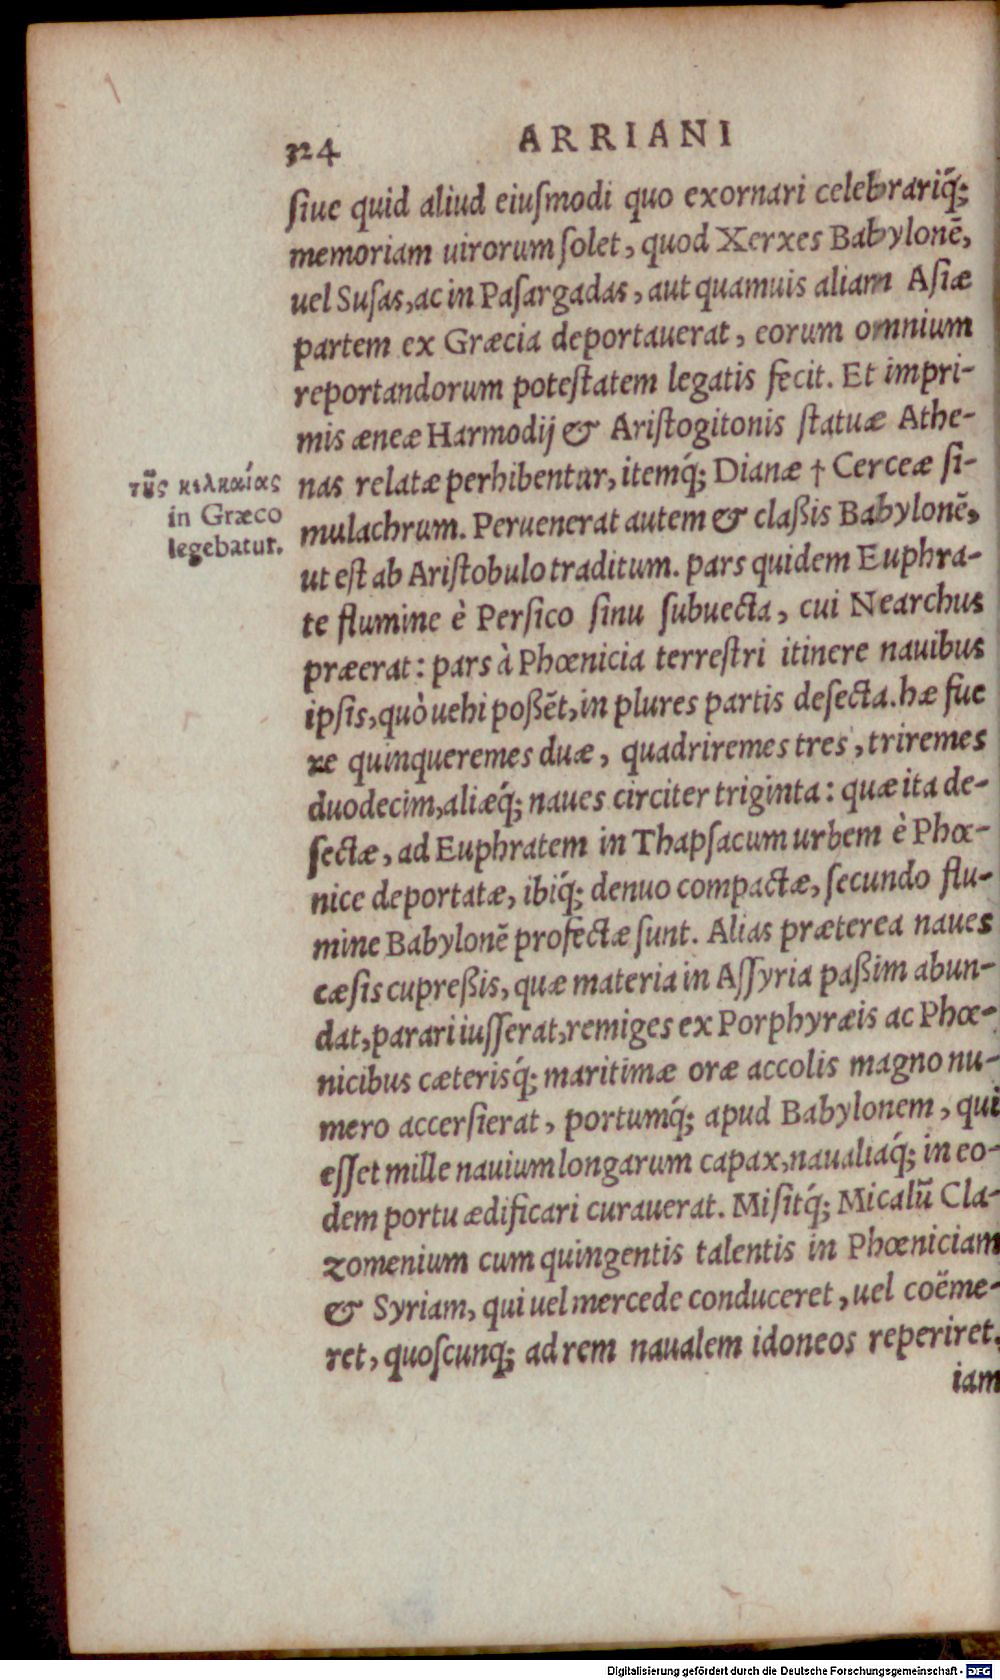 324 ARRIANI
siue quid aliud eiuſmodi quo exornari celebrariq́;
memoriam uirorum ſolet, quod Xerxes Babylonē,
uel Suſas, ac in Paſargadas, aut quamuis aliam Aſiæ
partem ex Græcia deportauerat, eorum omnium
reportandorum poteſtatem legatis fecit. Et impri-
mis æneæ Harmodij & Ariſtogitonis ſtatuæ Athe-
nas relatæ perhibentur, itemq́; Dianæ † Cerceæ ſi-
mulachrum. Peruenerat autem & claßis Babylonē,
ut eſt ab Ariſtobulo traditum. pars quidem Euphra-
te flumine è Perſico ſinu ſubuecta, cui Nearchus
præerat: pars à Phœnicia terreſtri itinere nauibus
ipſis, quò uehi poßēt, in plures partis deſecta. hæ fue
re quinqueremes duæ, quadriremes tres, triremes
duodecim, aliæq́; naues circiter triginta: quæ ita de-
ſectæ, ad Euphratem in Thapſacum urbem è Phœ-
nice deportatæ, ibiq́; denuo compactæ, ſecundo flu-
mine Babylonē profectæ ſunt. Alias præterea naues
cæſis cupreßis, quæ materia in Aſſyria paßim abun-
dat, parari iuſſerat, remiges ex Porphyræis ac Phœ-
nicibus cæterisq́; maritimæ oræ accolis magno nu-
mero accerſierat, portumq́; apud Babylonem, qui
eſſet mille nauium longarum capax, naualiaq́; in eo-
dem portu ædificari curauerat. Miſitq́; Micalū Cla-
zomenium cum quingentis talentis in Phœniciam
& Syriam, qui uel mercede conduceret, uel coëme-
ret, quoſcunq; ad rem naualem idoneos reperiret,
iam
τῆς κελκαίας
in Græco
legebatur.
Digitalisierung gefördert durch die Deutsche Forschungsgemeinschaft - DFG